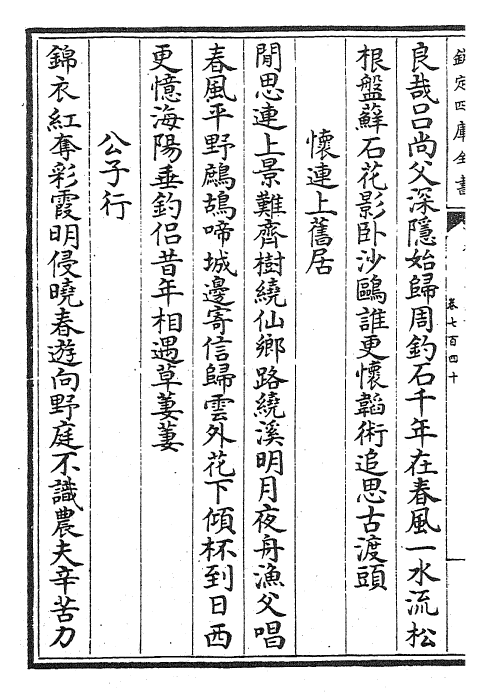 欽定四庫全書
卷七百四十
良哉呂尚父深隱始歸周釣石千年在春風一水流松
根盤蘚石花影卧沙鷗誰更懷韜術追思古渡頭
懷連上舊居
閒思連上景難齊樹繞仙鄉路繞溪明月夜舟漁父唱
春風平野鷓鴣啼城邊寄信歸雲外花下傾杯到日西
更憶海陽垂釣侣昔年相遇草萋萋
公子行
錦衣紅奪彩霞明侵曉春遊向野庭不識農夫辛苦力